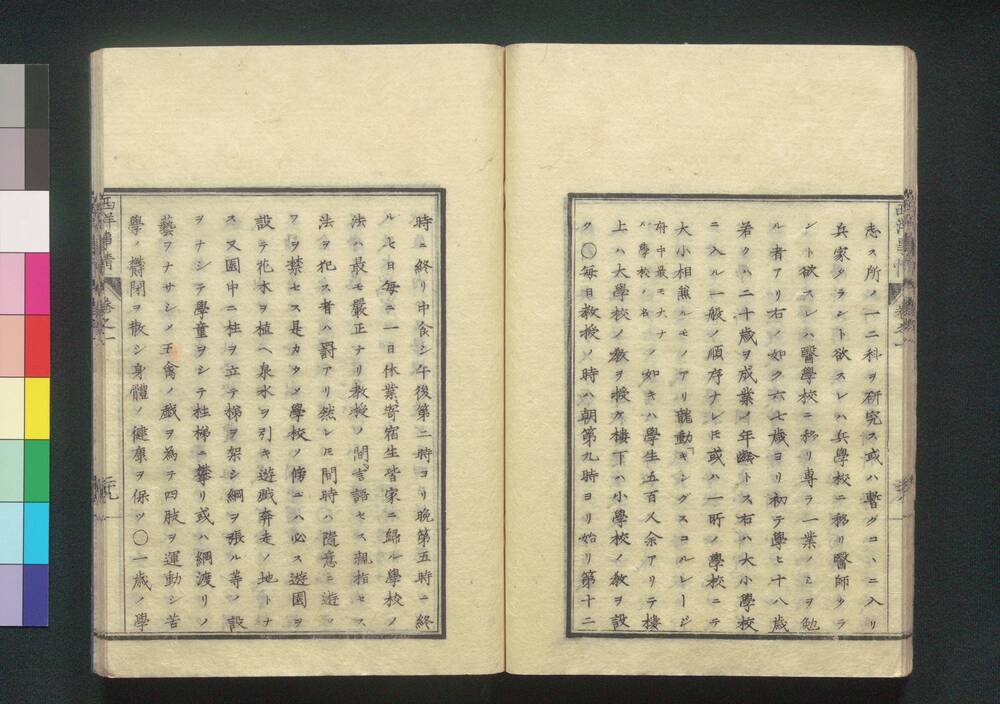 志ス所ノ一二科ヲ研究ス或ハ暫グコヽニ入リ
兵家タラント欲スレハ兵學校ニ移リ醫師タラ
ント欲スレハ醫學校ニ移リ專ラ一業ノミヲ勉
ル者アリ右ノ如ク六七歳ヨリ初テ學ヒ十八歳
若クハ二十歳ヲ成業ノ年齡トス右ハ大小學校
ニ入ル一般ノ順序ナレ𪜈或ハ一所ノ學校ニテ
大小相兼ルモノアリ龍動「キングスコルレージ
府中最モ大ナ
ル學校ノ名
ノ如キハ學生五百人余アリテ樓
上ハ大學校ノ教ヲ授ケ樓下ハ小學校ノ教ヲ設
ク○毎日教授ノ時ハ朝第九時ヨリ始リ第十二
時ニ終リ中食シ午後第二時ヨリ晩第五時ニ終
ル七日毎ニ一日休業寄宿生皆家ニ歸ル學校ノ
法ハ最モ嚴正ナリ教授ノ間言語セス親指セス
法ヲ犯ス者ハ罸アリ然レ𪜈間時ハ隨意ニ遊
フヲ禁セス是カタメ學校ノ傍ニハ必ス遊園ヲ
設テ花木ヲ植ヘ泉水ヲ引キ遊戯奔走ノ地トナ
ス又園中ニ柱ヲ立テ梯ヲ架シ綱ヲ張ル等ノ設
ヲナシテ學童ヲシテ柱梯ニ攀リ或ハ綱渡リノ
藝ヲナサシメ五禽ノ戯ヲ為テ四肢ヲ運動シ苦
學ノ欝閉ヲ散シ身體ノ健康ヲ保ツ○一歳ノ學
西洋事情
卷之一